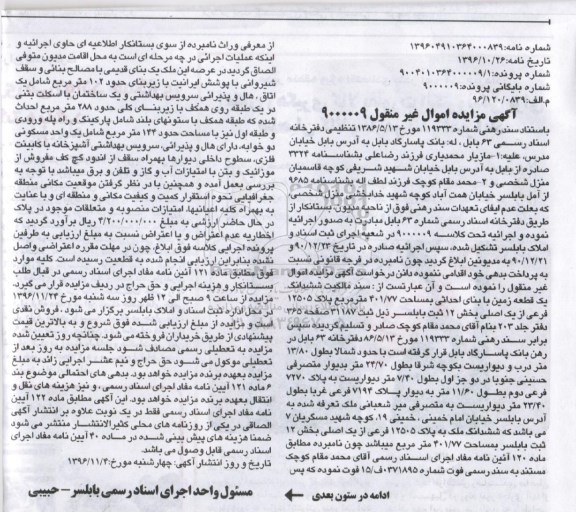 شماره نامه:۱۳۹۶۰۴۹۱۰۳۶۴۰۰۰۸۳۹
تاریخ نامه:۱۳۹۶/۱۰/۲۶
شماره پرونده:۹۰۰۴۰۱۰۳۶۴۰۰۰۰۰۹/۱
شماره بایگانی پرونده:۹۰۰۰۰۰۹
م.الف:۹۶/۱۲۰/۰۸۳۹
آگهی مزایده اموال غیر منقول ۹۰۰۰۰۰۹
باستناد سند رهنی شماره ۱۱۹۳۳۳ مورخ ۱۳۸۶/۵/۱۳ تنظیمی دفترخانه
اسناد رسمی ۶۳ بابل ، له: بانک پاسارگاد بابل به آدرس بابل خیابان
مدرس، علیه:۱-مازیار محمدیاری فرزند رضاعلی بشناسنامه ۳۳۲۴
صادره از بابل به آدرس بابل خیابان شهید شریفی کوچه قاسمیان
منزل شخصی و ۲-محمد مقام کوچک فرزند لطف اله بشناسنامه ۹۶۸۵
از آمل بابلسر خیابان همت آباد کوچه شهید خدابخش منزل شخصی،
که بعلت عدم ایفای تعهدات سند رهنی فوق از ناحیه مدیون بستانکار از
طریق دفترخانه اسناد رسمی شماره ۶۳ بابل مبادرت به صدور اجرائیه
نموده و اجرائیه تحت کلاسه ۹۰۰۰۰۰۹ در شعبه اجرای ثبت اسناد و
املاک بابلسر تشکیل شده، سپس اجرائیه صادره در تاریخ ۹۰/۱۲/۲۳ و
۹۰/۱۲/۲۱ به مدیونین ابلاغ گردید چون نامبرده در فرجه قانونی نسبت
به پرداخت بدهی خود اقدامی ننموده دائن درخواست آگهی مزایده اموال
غیر منقول را نموده است و آن عبارتست از : سند مالکیت ششدانگ
یک قطعه زمین با بنای احداثی بمساحت ۴۰۱/۷۷ مترمربع پلاک ۱۲۵۰۵
فرعی از یک اصلی بخش ۱۲ ثبت بابلسر ذیل ثبت ۳۱۱۸۷ صفحه ۳۶۵
دفتر جلد ۲۰۳ بنام آقای محمد مقام کوچک صادر و تسلیم گردیده سپس در
برابر سند رهنی شماره ۱۱۹۳۳۳ مورخ ۸۶/۵/۱۳ دفترخانه ۶۳ بابل در
رهن بانک پاسارگاد بابل قرار گرفته است با حدود شمالا بطول ۱۳/۸۰
متر درب و دیواریست بکوچه شرقا بطول ۲۴/۷۰ متر بدیوار متصرفی
حسینی جنوبا در دو جز اول بطول ۷/۴۰ متر دیواریست به پلاک ۷۲۷۰
فرعی دوم بطول ۱۱/۶۰ متر به دیوار پلاک ۷۱۹۴ فرعی غربا بطول
۲۳/۴۰ متر دیواریست به متصرفی میر شعبانی ملک تعرفه شده به
آدرس بابلسر خیابان امام خمینی ، خمینی ۱۹، کوچه شهید مسگریان ۷
می باشد که ششدانگ ملک به پلاک ۱۲۵۰۵ فرعی از یک اصلی بخش ۱۲
ثبت بابلسر بمساحت ۴۰۱/۷۷ متر مربع میباشد چون نامبرده مطابق
ماده ۱۲۰ آئین نامه مفاد اجرای اسناد رسمی آقای محمد مقام کوچک
مستند به سند رسمی فوت شماره ۰۳۷۱۸۹۵ف/۱۵ فوت نموده که پس
ادامه در ستون بعدی
از معرفی وراث نامبرده از سوی بستانکار اطلاعیه ای حاوی اجرائیه و
اینکه عملیات اجرائی در چه مرحله ای است به محل اقامت مدیون متوفی
الصاق گردید در عرصه این ملک یک بنای قدیمی با مصالح بنائی و سقف
شیروانی با پوشش ایرانیت با زیربنای حدود ۱۰۲ متر مربع شامل یک
اتاق ، هال و پذیرائی سرویس بهداشتی و یک ساختمان با اسکلت بتنی
در یک طبقه روی همکف با زیربنای کلی حدود ۲۸۸ متر مربع احداث
شده که طبقه همکف با ستونهای بلند شامل پارکینگ و راه پله ورودی
و طبقه اول نیز با مساحت حدود ۱۴۴ متر مربع شامل یک واحد مسکونی
دو خوابه، دارای هال و پذیرائی، سرویس بهداشتی آشپزخانه با کابینت
فلزی، سطوح داخلی دیوارها بهمراه سقف از اندود گچ کف مفروش از
موزائیک و بتن با امتیازات آب و گاز و تلفن و برق میباشد با توجه به
بررسی بعمل آمده و همچنین با در نظر گرفتن موقعیت مکانی منطقه
جغرافیایی نحوه استقرار کمیت و کیفیت مکانی و منطقه ای و با عنایت
به بهمراه کلیه اعیانیها، امتیازات منصوبه و متعلقات موجود در پلاک
در حال حاضر ارزشی به مبلغ ۳/۲۰۰/۰۰۰/۰۰۰ ریال برآورد گردید که
اخطاریه عدم اعتراض و یا اعتراض نسبت به مبلغ ارزیابی به طرفین
پرونده اجرایی کلاسه فوق ابلاغ، چون در مهلت مقرره اعتراضی واصل
نشده بنابراین ارزیابی انجام شده به قطعیت رسیده است. کلیه موارد
فوق مطابق ماده ۱۲۱ آئین نامه مفاد اجرای اسناد رسمی در قبال طلب
بستانکار و هزینه اجرایی و حق حراج در ردیف مزایده قرار می گیرد.
مزایده از ساعت ۹ صبح الی ۱۲ ظهر روز سه شنبه مورخ ۱۳۹۶/۱۱/۲۴
در محل اداره ثبت اسناد و املاک بابلسر برگزار می شود ، فروش نقدی
است و مزایده از مبلغ ارزیابی شده فوق شروع و به بالاترین قیمت
پیشنهادی از طریق خریداران فروخته می شود. چنانچه روز تعیین شده
مزایده به تعطیلی رسمی مصادف شود جلسه مزایده به روز بعد از
تعطیلی موکول می شود حق حراج و نیم عشر اجرایی زائد به مبلغ
مزایده بعهده برنده مزایده خواهد بود. بدهی های احتمالی موضوع بند
۶ ماده ۱۲۱ آئین نامه مفاد اجرای اسناد رسمی ، و نیز هزینه های نقل و
انتقال بعهده برنده مزایده خواهد بود. این آگهی مطابق ماده ۱۲۲ آیین
نامه مفاد اجرای اسناد رسمی فقط در یک نوبت علاوه بر انتشار آگهی
الصاقی در یکی از روزنامه های محلی کثیرالانتشار منتشر می شود
ضمنا هزینه های پیش بینی شده در ماده ۴۰ آیین نامه مفاد اجرای
اسناد رسمی قابل وصول می باشد.
تاریخ و روز انتشار آگهی: چهارشنبه مورخ:۱۳۹۶/۱۱/۴
مسئول واحد اجرای اسناد رسمی بابلسر - حبیبی